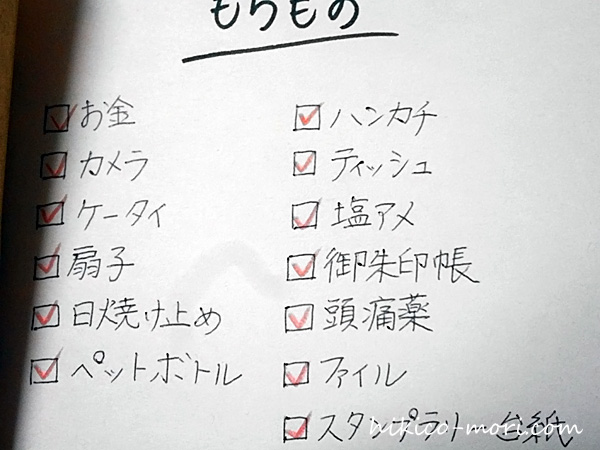 もちもの
お金
カメラ
ケータイ
扇子
日焼け止め
ペットボトル
ハンカチ
ティッシュ
塩アメ
御朱印帳
頭痛薬
ファイル
スタンプラリー台紙